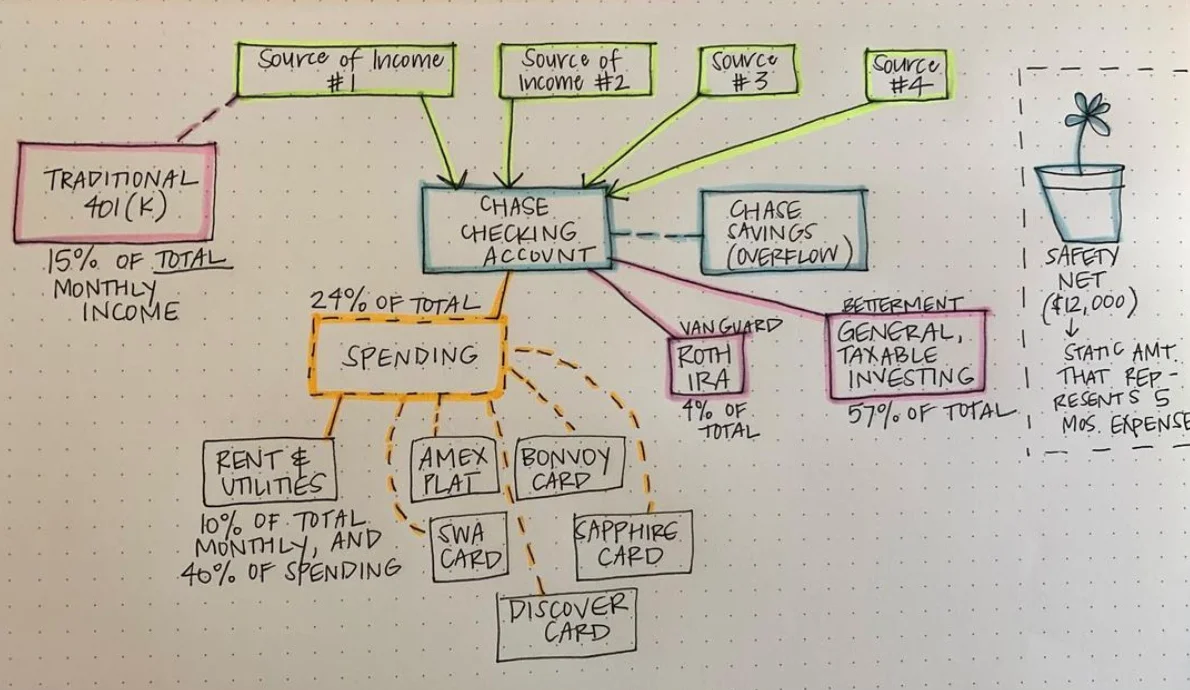 Source of Income
#1
Source of
Income #2
Source
#3
Source
#4
TRADITIONAL
401(K)
15% OF TOTAL
MONTHLY
INCOME
CHASE
CHECKING
ACCOUNT
CHASE
SAVINGS
(OVERFLOW)
SAFETY
NET
($12,000)
STATIC AMT.
THAT REP-
RESENTS 5
MOS. EXPENSE
24% OF TOTAL
SPENDING
VANGUARD
ROTH
IRA
4% OF
TOTAL
BETTERMENT
GENERAL,
TAXABLE
INVESTING
57% OF TOTAL
RENT &
UTILITIES
10% OF TOTAL
MONTHLY, AND
40% OF SPENDING
AMEX
PLAT
BONVOY
CARD
SWA
CARD
SAPPHIRE
CARD
DISCOVER
CARD